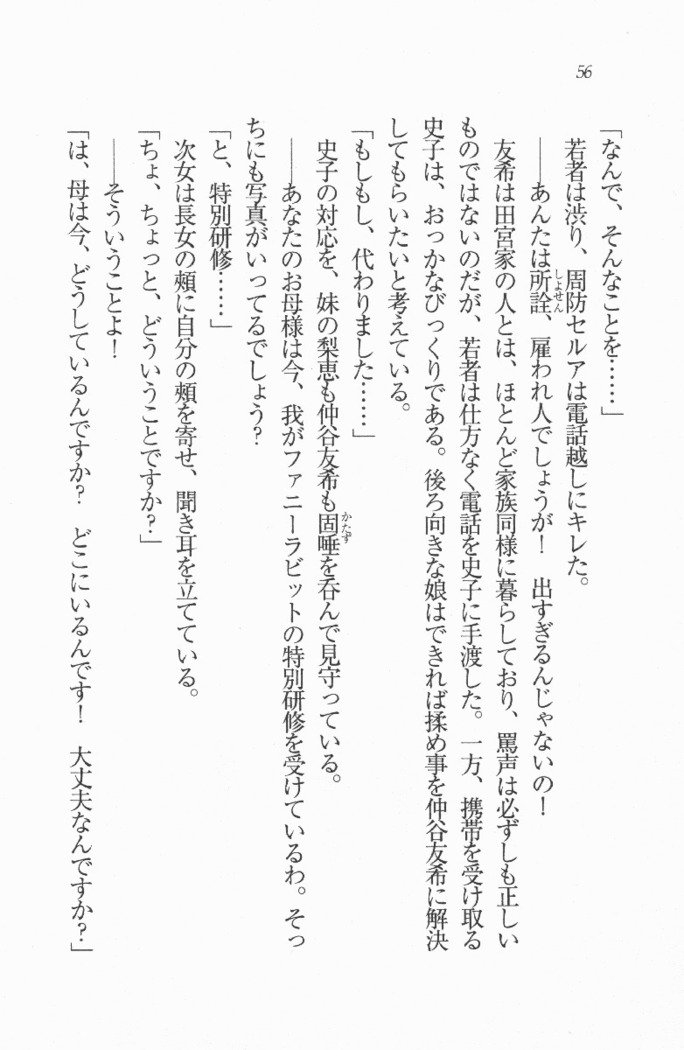 56
「なんで、そんなことを……」
若者は渋り、周防セルアは電話越しにキレた。
――あんたは所詮、雇われ人でしょうが!　出すぎるんじゃないの!
友希は田宮家の人とは、ほとんど家族同様に暮らしており、罵声は必ずしも正しい
ものではないのだが、若者は仕方なく電話を史子に手渡した。一方、携帯を受け取る
史子は、おっかなびっくりである。後ろ向きな娘はできれば揉め事を仲谷友希に解決
してもらいたいと考えている。
「もしもし、代わりました……」
史子の対応を、妹の梨恵も仲谷友希も固唾を呑んで見守っている。
――あなたのお母様は今、我がファニーラビットの特別研修を受けているわ。そっ
ちにも写真がいってるでしょう?
「と、特別研修……」
次女は長女の頰に自分の頰を寄せ、聞き耳を立てている。
「ちょ、ちょっと、どういうことですか?」
――そういうことよ!
「は、母は今、どうしているんですか?　どこにいるんです!　大丈夫なんですか?」
しょせん
かたず